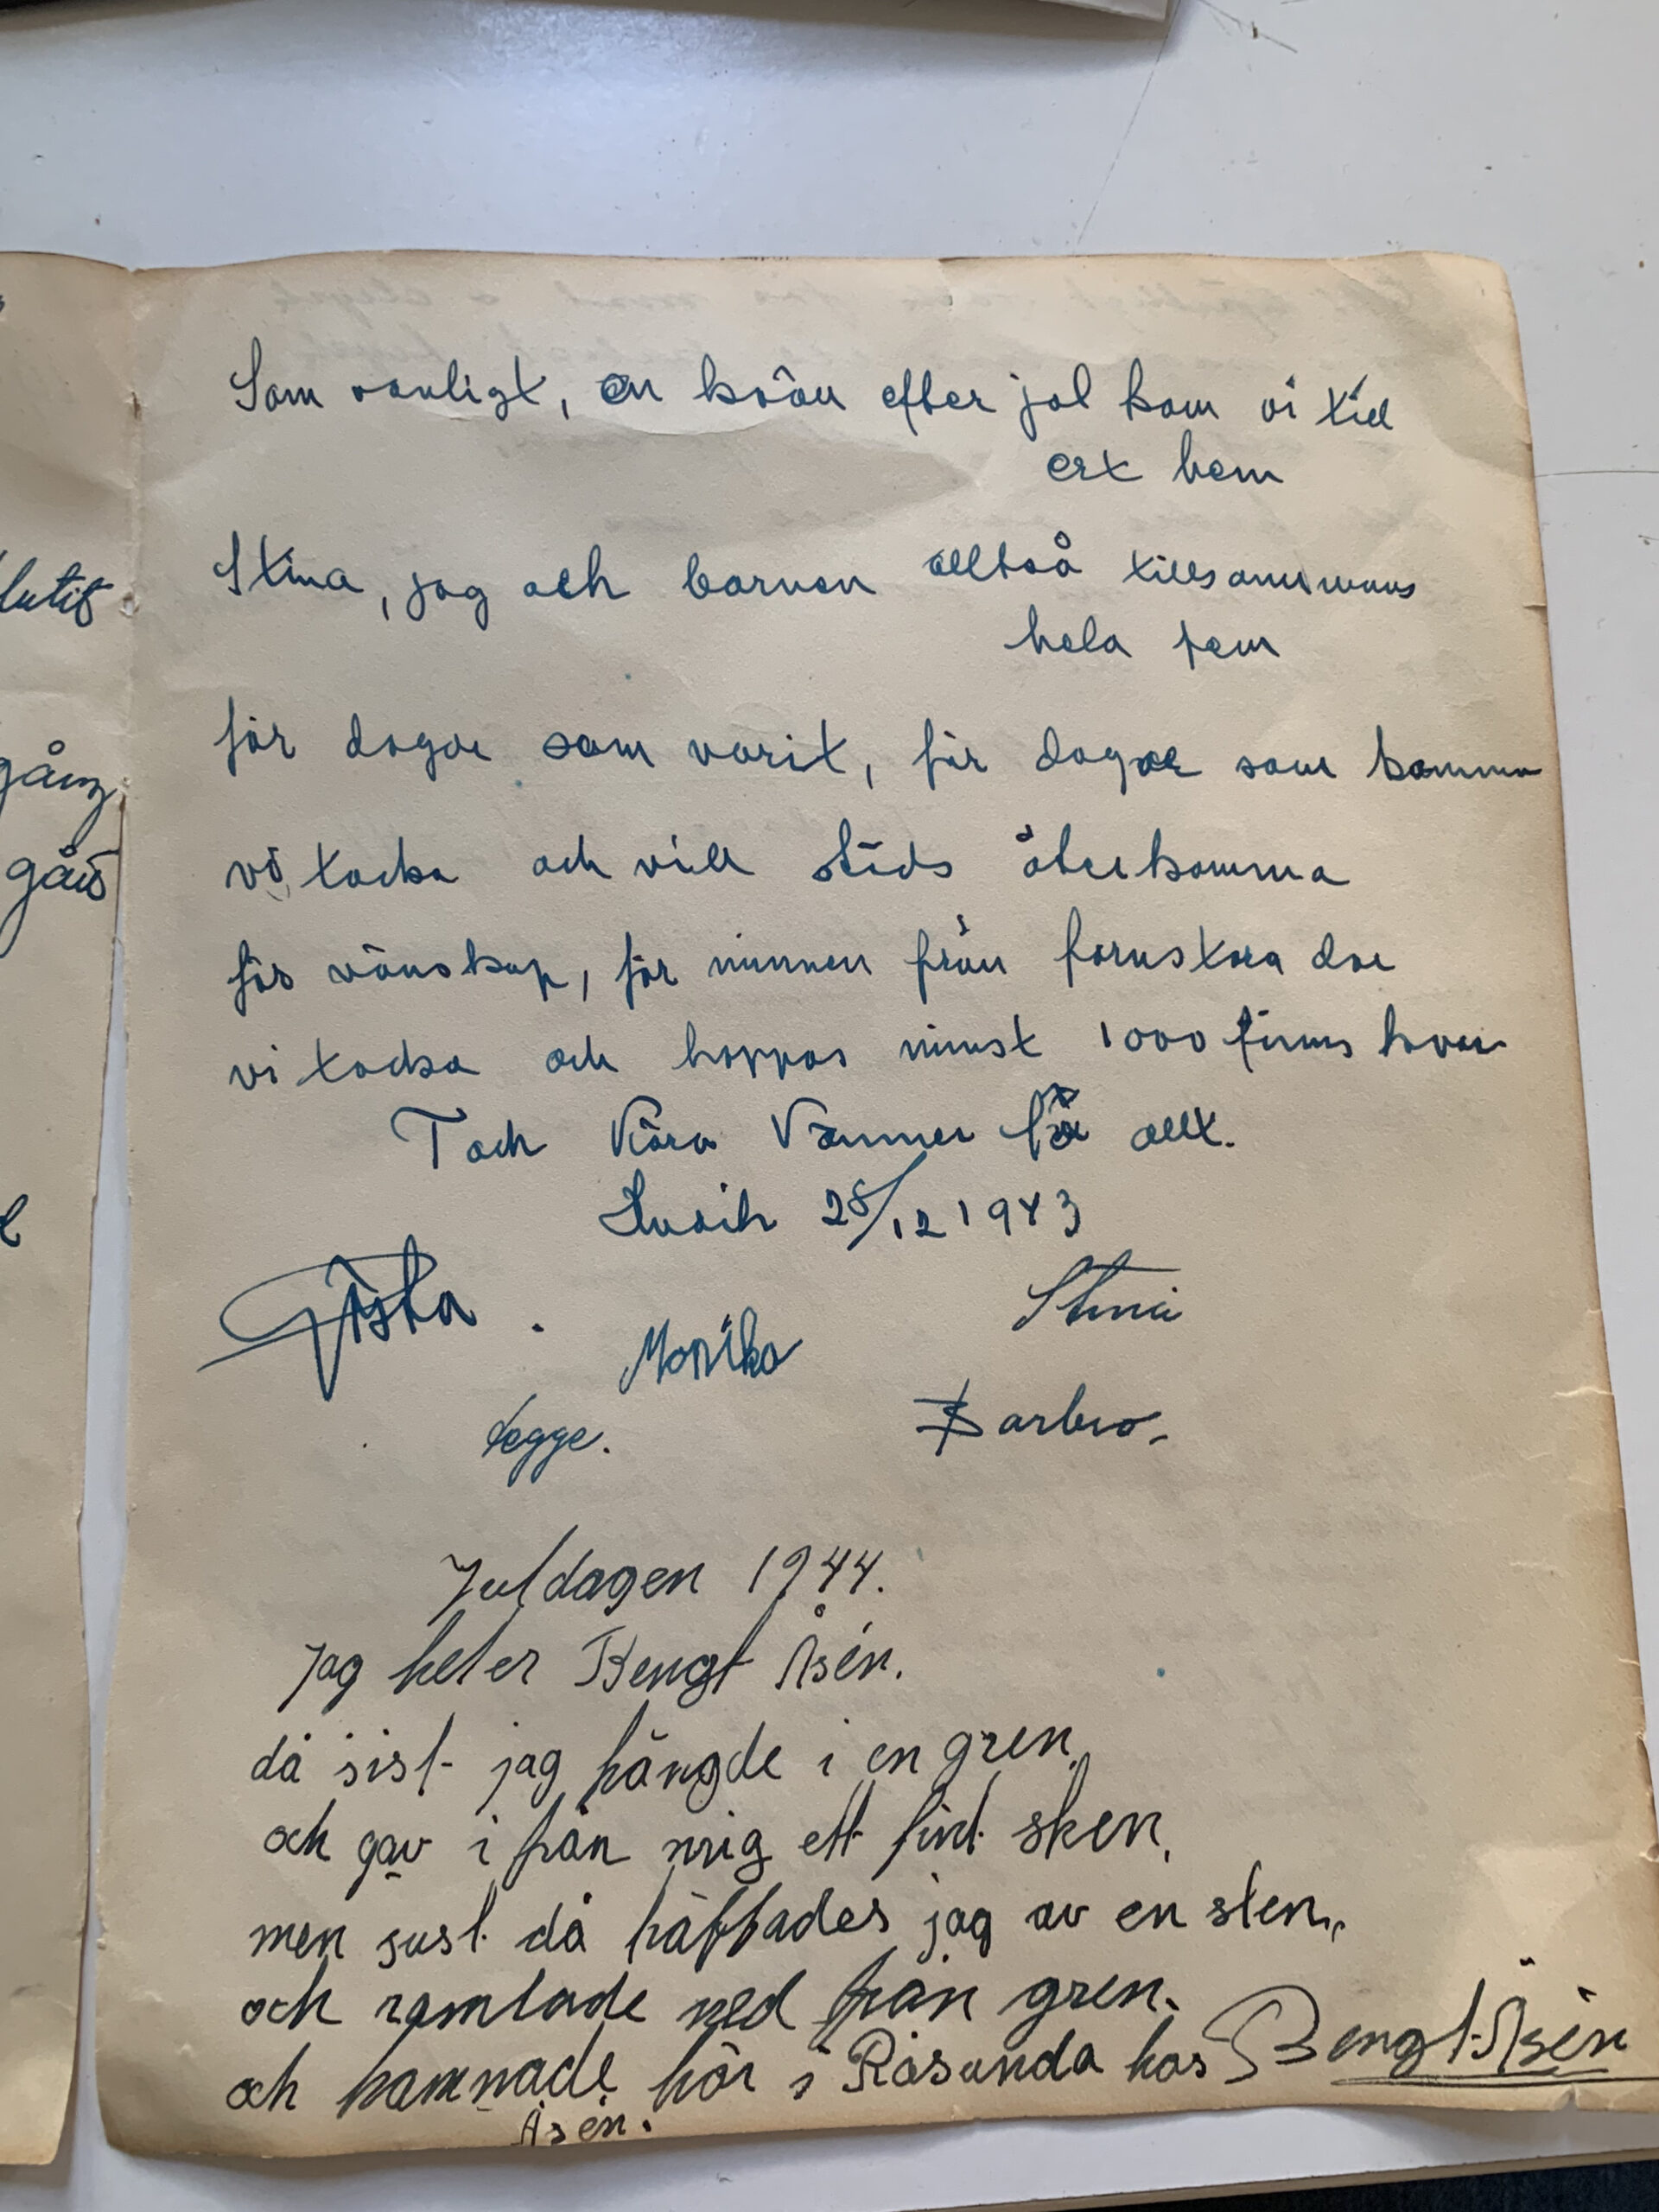 lutit
gång
gång
Som vanligt, en kväll efter jul kom vi till
ert hem
Stina, jag och barnen alltså tillsammans
hela fem
för dagar som varit, för dagar som komma
vi tacka och vill städs återkomma
för vänskap, för minnen från fornstora dar
vi tacka och hoppas minst 1000 finns kvar
Tack Kära Vänner för allt.
28/12 1943
Gösta
Stina
Monika
Legge.
Barbro.
Juldagen 1944.
Jag heter Bengt Åsén.
då sist jag hängde i en gren.
och gav i från mig ett fint sken.
men just då träffades jag av en sten.
och ramlade ned från gren.
och hamnade här i Råsunda hos
Åsén.
Bengt Åsén